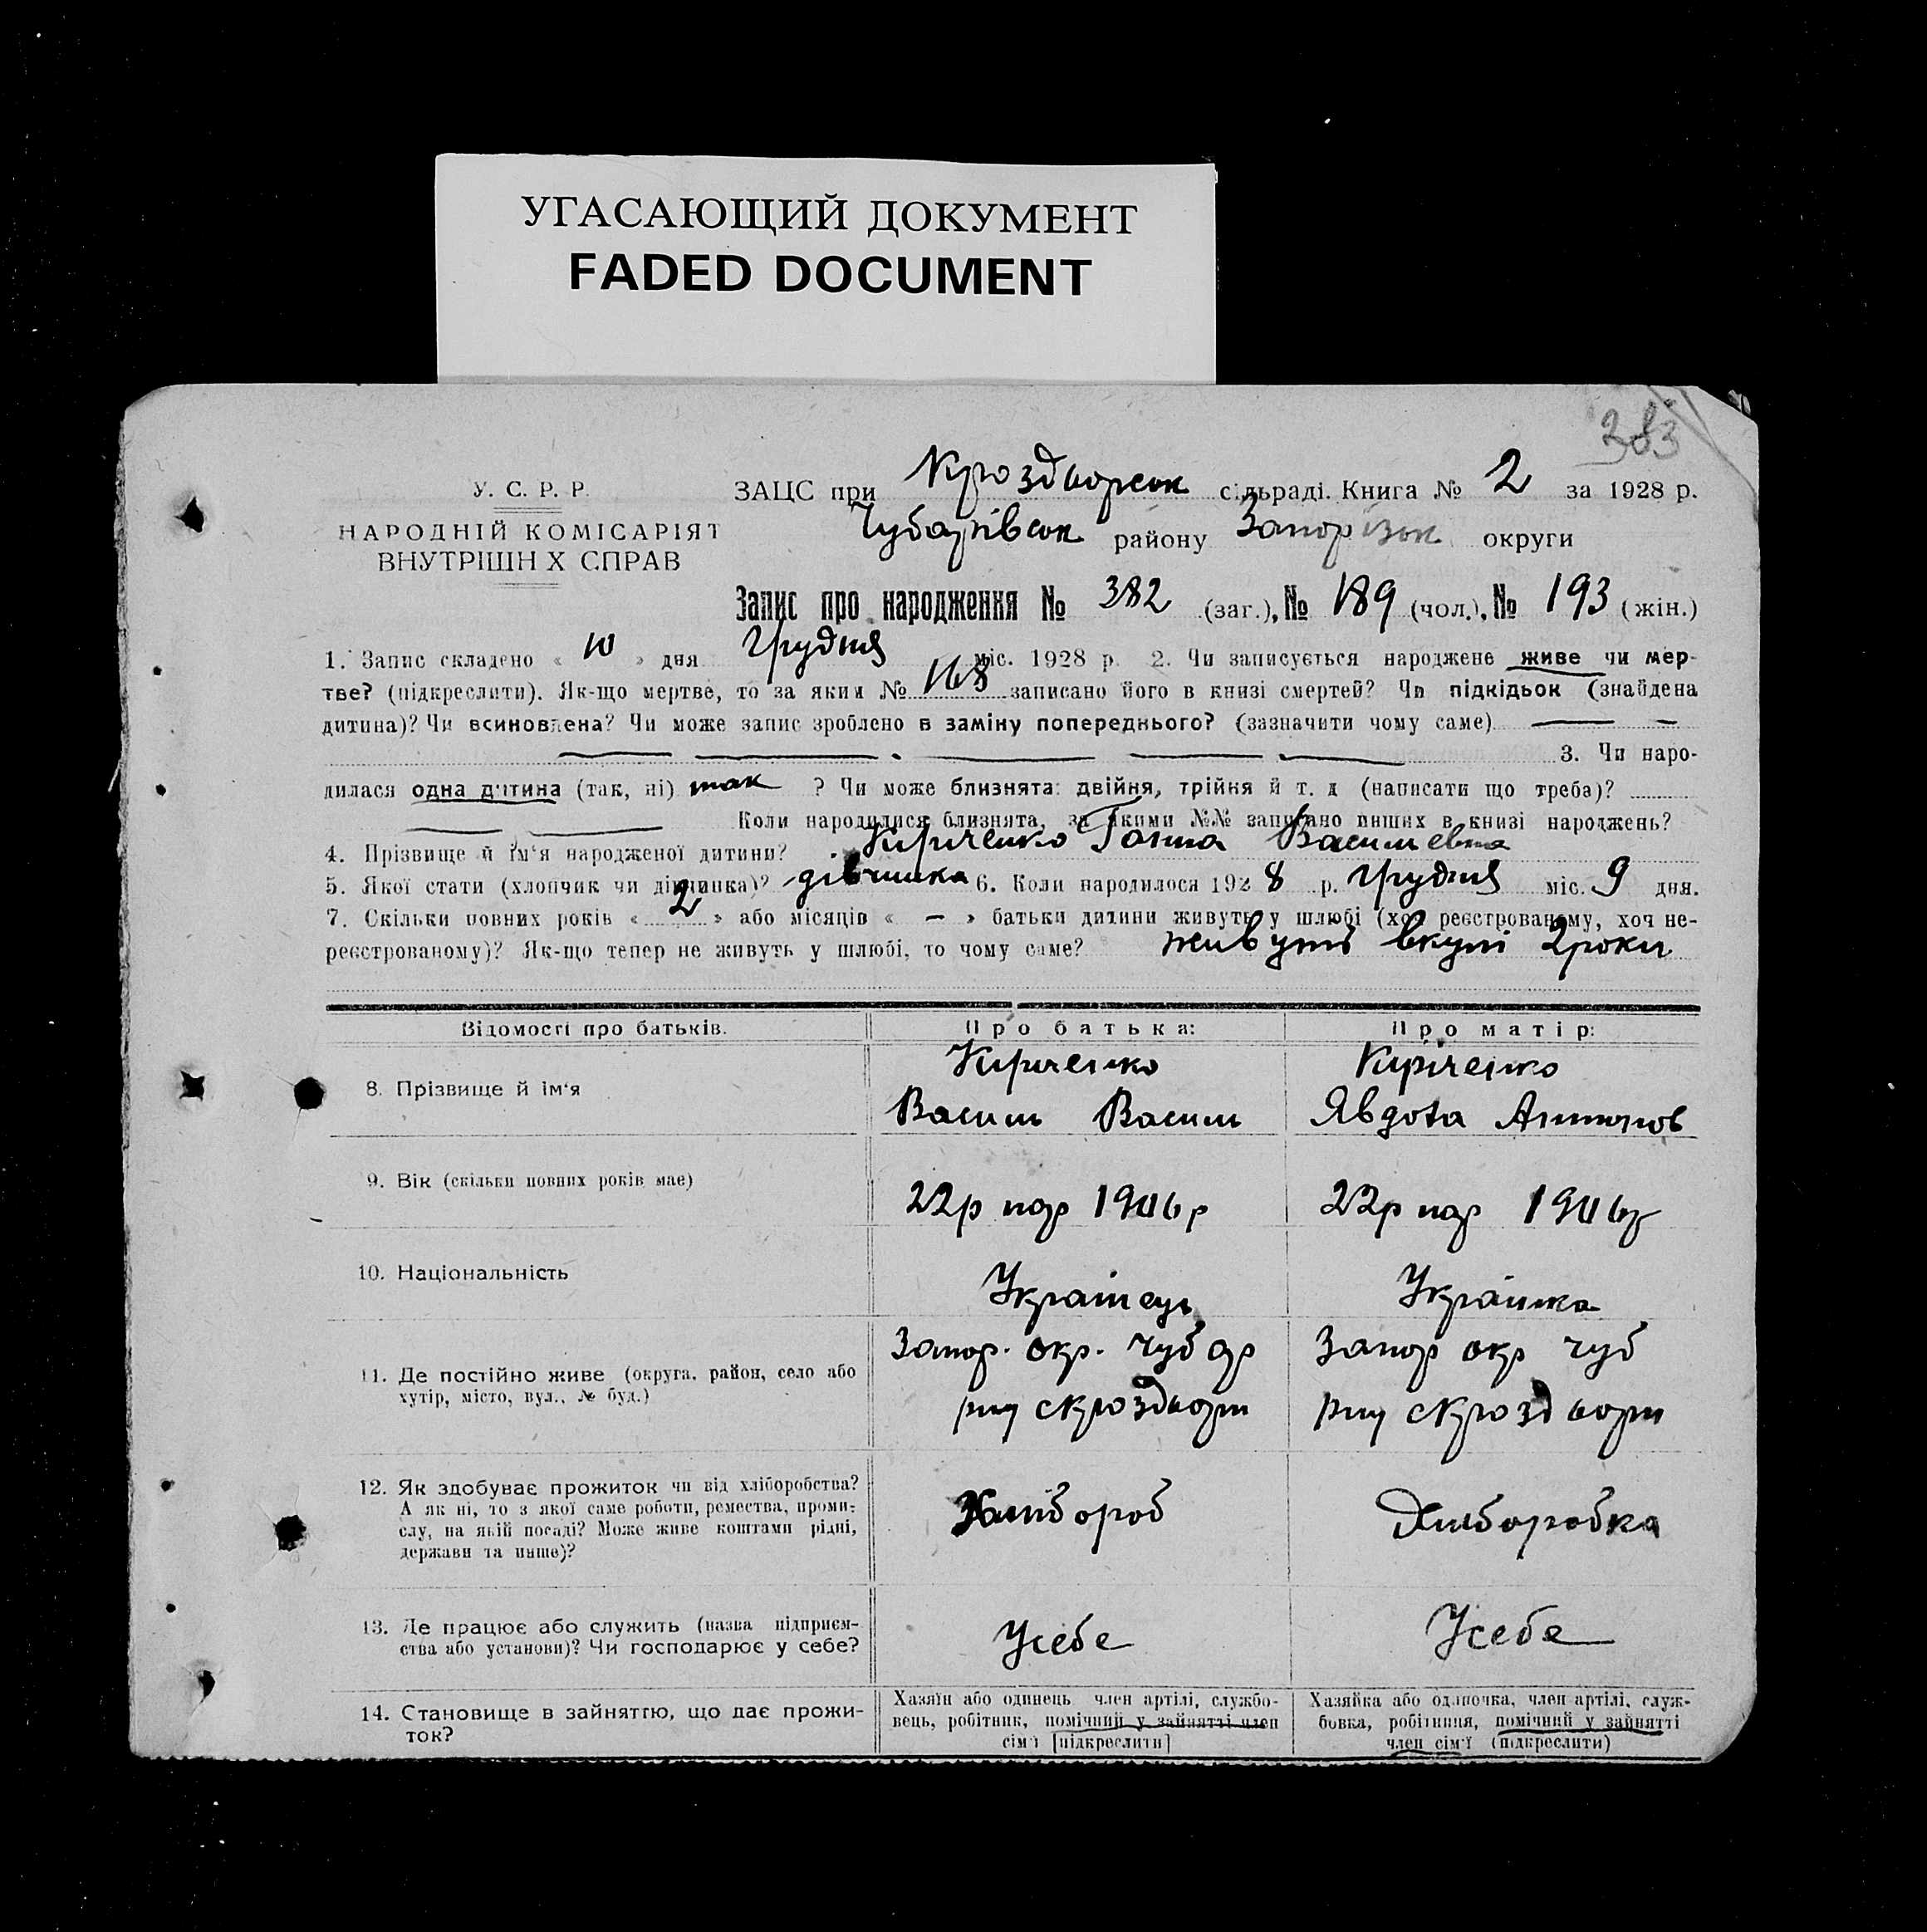 УГАСАЮЩИЙ ДОКУМЕНТ
FADED DOCUMENT
383
У. С. Р. Р.
НАРОДНІЙ КОМІСАРІЯТ
ВНУТРІШН Х СПРАВ
ЗАЦС при Кроздворсок сільраді. Книга № 2 за 1928 р.
Чубарівсок району Запорізок округи
Запис про народження № 382 (заг.), № 189 (чол.), № 193 (жін.)
1. Запис складено « 10 » дня Грудня міс. 1928 р. 2. Чи записується народжене живе чи мер-
тве? (підкреслити). Як-що мертве, то за яким № 168 записано його в книзі смертей? Чи підкідьок (знайдена
дитина)? Чи всиновлена? Чи може запис зроблено в заміну попереднього? (зазначити чому саме) — —
— — — — — 3. Чи наро-
дилася одна дитина (так, ні) так ? Чи може близнята: двійня, трійня й т. д (написати що треба)?
— — Коли народилися близнята, за якими №№ записано инших в книзі народжень?
4. Прізвище й ім'я народженої дитини? Кириченко Ганна Василевна
5. Якої стати (хлопчик чи дівчинка)? дівчинка 6. Коли народилося 1928 р. Грудня міс. 9 дня.
7. Скільки повних років « 2 » або місяців « — » батьки дитини живуть у шлюбі (хоч реєстрованому, хоч не-
реєстрованому)? Як-що тепер не живуть у шлюбі, то чому саме? живуть вкупі 2 роки
Відомості про батьків. Про батька: Про матір:
8. Прізвище й ім'я
Кириченко
Васи́ль Василь
Кіріченко
Явдота Антонов
9. Вік (скільки повних років має)
22р нар 1906р
22р нар 1906р
10. Національність
Українець
Українка
11. Де постійно живе (округа, район, село або
хутір, місто, вул., № буд.)
Запор. окр. Чубар
рну скроздвори
Запор окр чуб
рну скроздвори
12. Як здобуває прожиток чи від хліборобства?
А як ні, то з якої саме роботи, ремества, проми-
слу, на якій посаді? Може живе коштами рідні,
держави та инше)?
Хлібороб
Хлиборобка
13. Де працює або служить (назва підприєм-
ства або установи)? Чи господарює у себе?
Усебе
Усебе
14. Становище в зайняттю, що дає прожи-
ток?
Хазяїн або одинець член артілі, службо-
вець, робітник, помічний у зайнятті член
сім'ї [підкреслити]
Хазяйка або одиночка, член артілі, служ-
бовка, робітниця, помічний у зайнятті
член сім'ї (підкреслити)